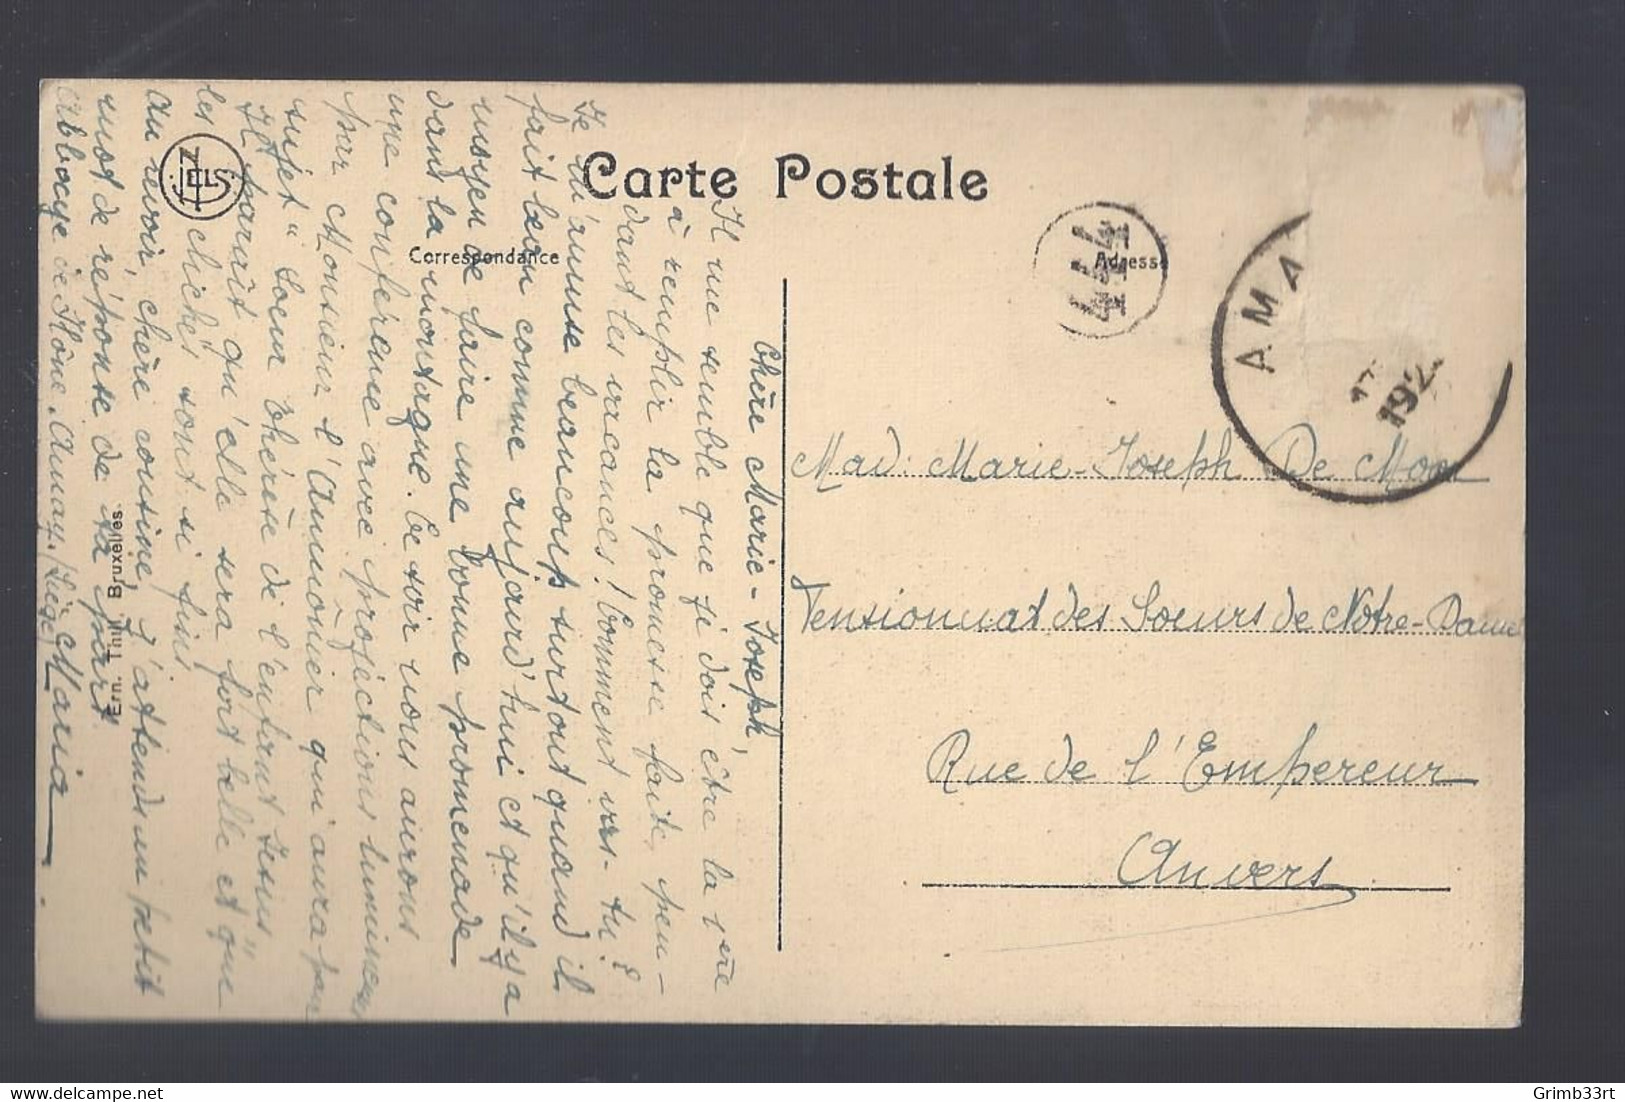 Carte Postale
Correspondance
Adresse
444
AMA
192
NELS
Ern. Thill, Bruxelles.
Mad. Marie-Joseph De Moor
Pensionnat des Soeurs de Notre-Dame
Rue de l'Empereur
Anvers
Chère Marie-Joseph,
Il me semble que je dois être la 1ère
à remplir la promesse faite, pen-
dant les vacances! Comment vas-tu?
Je m'amuse beaucoup surtout quand il
fait beau comme aujourd'hui et qu'il y a
moyen de faire une bonne promenade
dans la montagne. Ce soir nous aurons
une conférence avec projections lumineuses
par Monsieur l'Aumônier qui aura pour
sujet "Soeur Thérèse de l'enfant Jésus"
Il paraît qu'elle sera fort belle et que
les clichés sont si fins
Au revoir, chère cousine j'attends un petit
mot de réponse de ta part
Maria
Abbaye de Flône. Amay. (Liège)
Grimb33rt